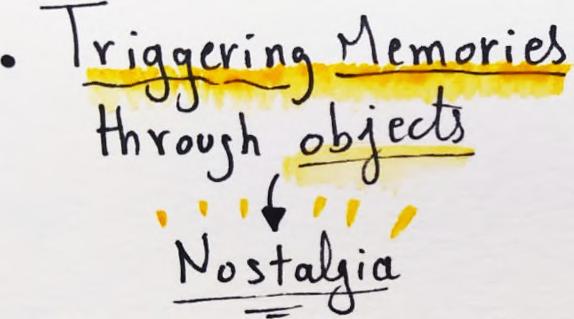 • Triggering Memories
through objects
↓
Nostalgia